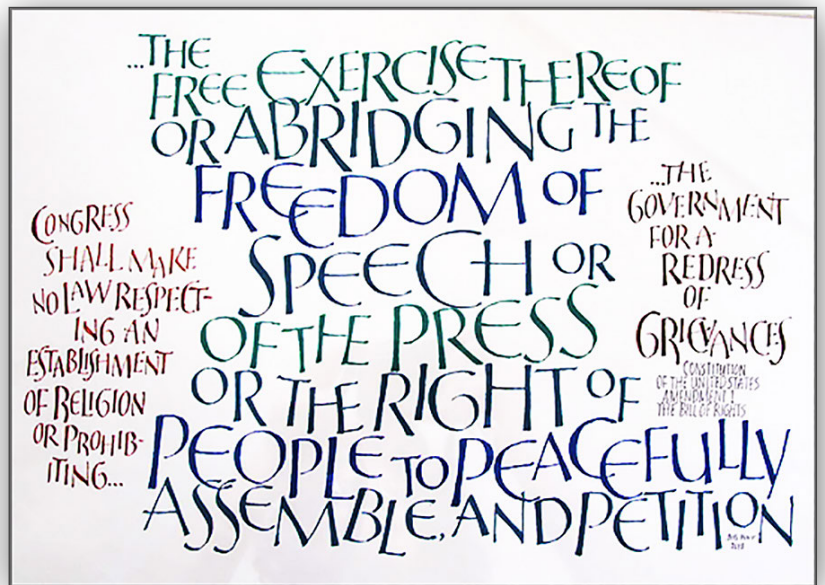 CONGRESS
SHALL MAKE
NO LAW RESPECT-
ING AN
ESTABLISHMENT
OF RELIGION
OR PROHIB-
ITING...
...THE
FREE EXERCISE THEREOF
OR ABRIDGING THE
FREEDOM OF
SPEECH OR
OF THE PRESS
OR THE RIGHT OF
PEOPLE TO PEACEFULLY
ASSEMBLE, AND PETITION
...THE
GOVERNMENT
FOR A
REDRESS
OF
GRIEVANCES
CONSTITUTION
OF THE UNITED STATES
AMENDMENT I
THE BILL OF RIGHTS